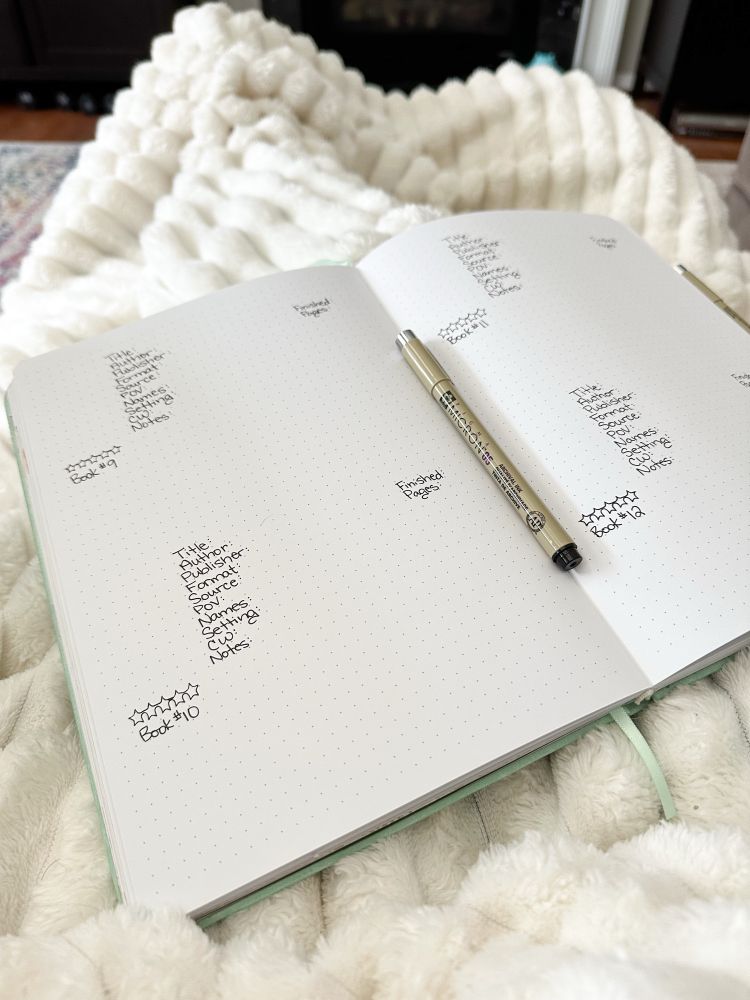 Finished:
Pages:
Title:
Author:
Publisher:
Format:
Source:
POV:
Names:
Setting:
CW:
Notes:
Book #9
Finished:
Pages:
Title:
Author:
Publisher:
Format:
Source:
POV:
Names:
Setting:
CW:
Notes:
Book #10
Title:
Author:
Publisher:
Format:
Source:
POV:
Names:
Setting:
CW:
Notes:
Finished:
Pages:
Book #11
Title:
Author:
Publisher:
Format:
Source:
POV:
Names:
Setting:
CW:
Notes:
Book #12
MICRON
05
ARCHIVAL INK